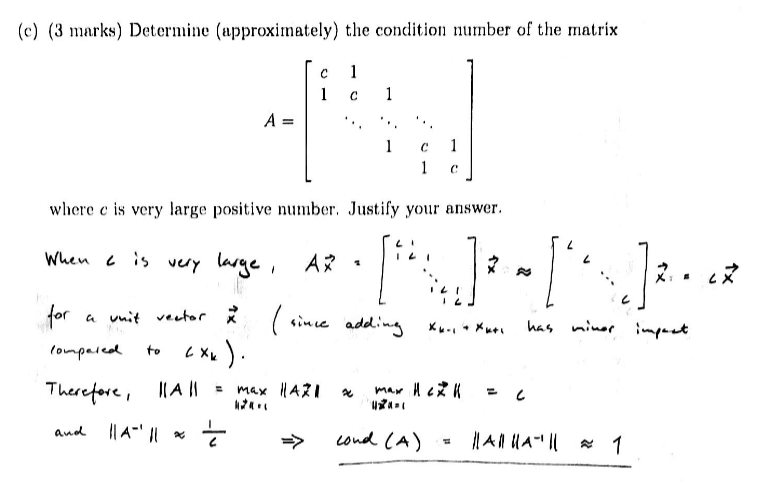 (c) (3 marks) Determine (approximately) the condition number of the matrix
A = [ c 1
1 c 1
⋱ ⋱ ⋱
1 c 1
1 c ]
where c is very large positive number. Justify your answer.
When c is very large, Ax⃗ = [ c 1 1 c 1 ⋱ 1 c 1 1 c ] x⃗ ≈ [ c c ⋱ c ] x⃗ = cx⃗
for a unit vector x⃗ (since adding xₖ₋₁ + xₖ₊₁ has minor impact
compared to cxₖ).
Therefore, ||A|| = max ||Ax⃗|| ≈ max ||cx⃗|| = c
||x⃗||=1 ||x⃗||=1
and ||A⁻¹|| ≈ 1/c ⇒ cond(A) = ||A|| ||A⁻¹|| ≈ 1